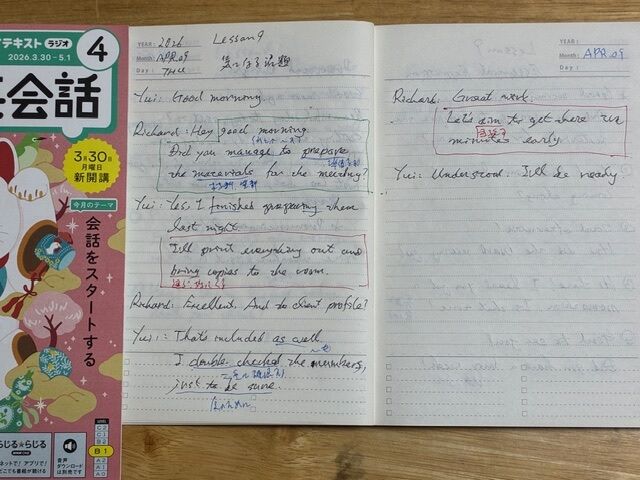 テキスト ラジオ
4
2026.3.30-5.1
英会話
3月30日
月曜日
新開講
今月のテーマ
会話をスタートする
LEVEL
C2
C1
B2
B1
A2
A1
A0
らじる★らじる
ネットで！アプリで！
どこでも番組が聴ける
音声
ダウンロード
は別売です
YEAR: 2026 Lesson 9
Month: APR.09
Day: THU 気になる話題
Yui: Good morning.
Richard: Hey, good morning.
Did you manage to prepare
the materials for the meeting?
Yui: Yes, I finished preparing them
last night.
I'll print everything out and
bring copies to the room.
Richard: Excellent. And do client profile?
Yui: That's included as well.
〜も
I double checked the numbers,
just to be sure.
念のために
YEAR:
Month: APR.09
Day:
Richard: Great work.
Let's aim to get there ten
目指す
minutes early.
Yui: Understood. I'll be ready